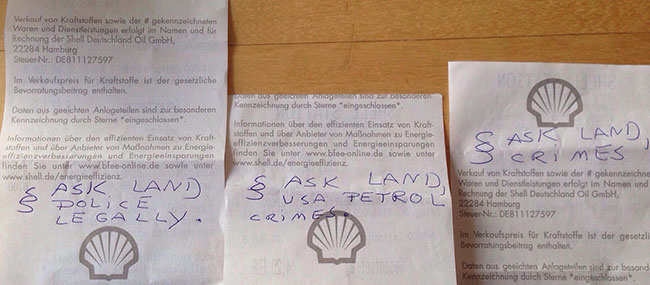 Verkauf von Kraftstoffen sowie der # gekennzeichneten
Waren und Dienstleistungen erfolgt im Namen und für
Rechnung der Shell Deutschland Oil GmbH,
22284 Hamburg
Steuer-Nr.: DE811127597
Im Verkaufspreis für Kraftstoffe ist der gesetzliche
Bevorratungsbeitrag enthalten.
Daten aus geeichten Anlageteilen sind zur besonderen
Kennzeichnung durch Sterne *eingeschlossen*.
Informationen über den effizienten Einsatz von Kraft-
stoffen und über Anbieter von Maßnahmen zu Energie-
effizienzverbesserungen und Energieeinsparungen
finden Sie unter www.bfee-online.de sowie unter
www.shell.de/energieeffizienz.
§ ASK LAND
POLICE
LEGALLY.
Daten aus geeichten Anlageteilen sind zur besonderen
Kennzeichnung durch Sterne *eingeschlossen*.
Informationen über den effizienten Einsatz von Kraft-
stoffen und über Anbieter von Maßnahmen zu Energie-
effizienzverbesserungen und Energieeinsparungen
finden Sie unter www.bfee-online.de sowie unter
www.shell.de/energieeffizienz.
§ ASK LAND,
USA PETROL
CRIMES.
§ ASK LAND,
CRIMES
Verkauf von Kraftstoffen sowie der # gekennzeichneten
Waren und Dienstleistungen erfolgt im Namen und
Rechnung der Shell Deutschland Oil GmbH,
22284 Hamburg
Steuer-Nr.: DE811127597
Im Verkaufspreis für Kraftstoffe ist der gesetzli
Bevorratungsbeitrag enthalten.
Daten aus geeichten Anlageteilen sind zur besonde
Kennzeichnung durch Sterne *eingeschlossen*.